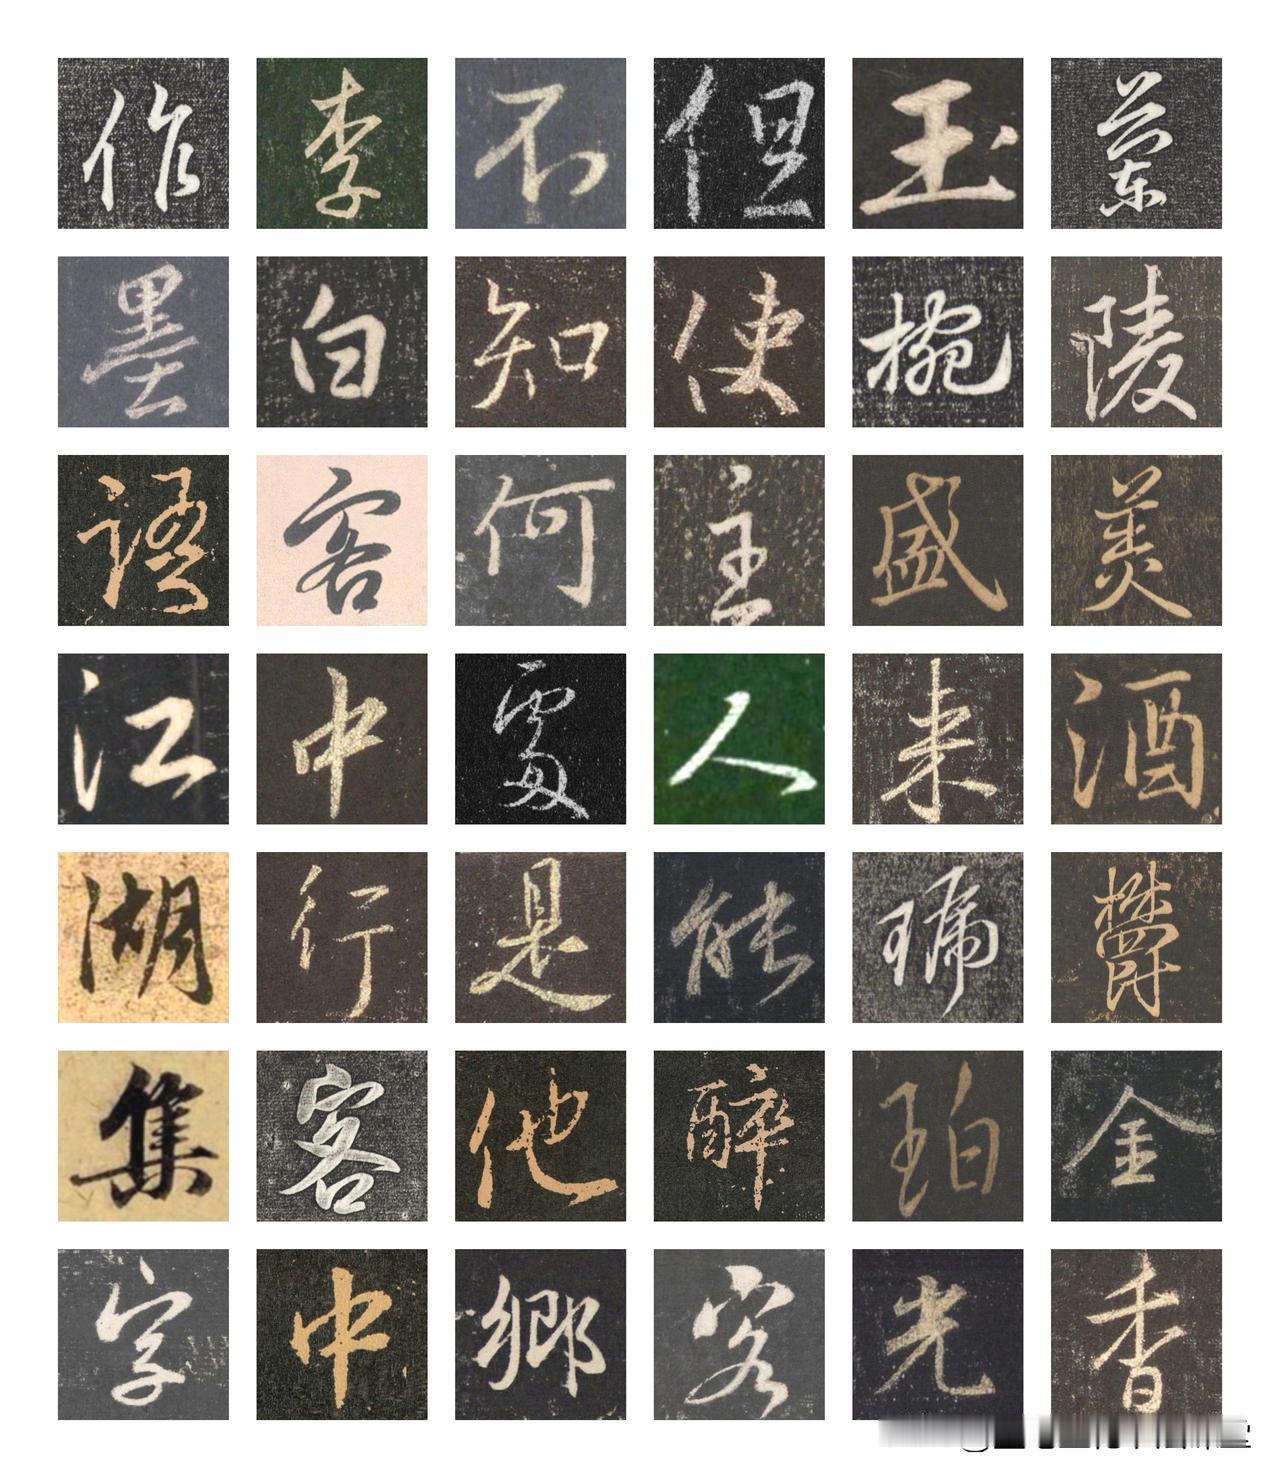 蘭陵美酒鬱金香
玉椀盛来琥珀光
但使主人能醉客
不知何處是他鄉
李白客中行客中
作墨語江湖集字